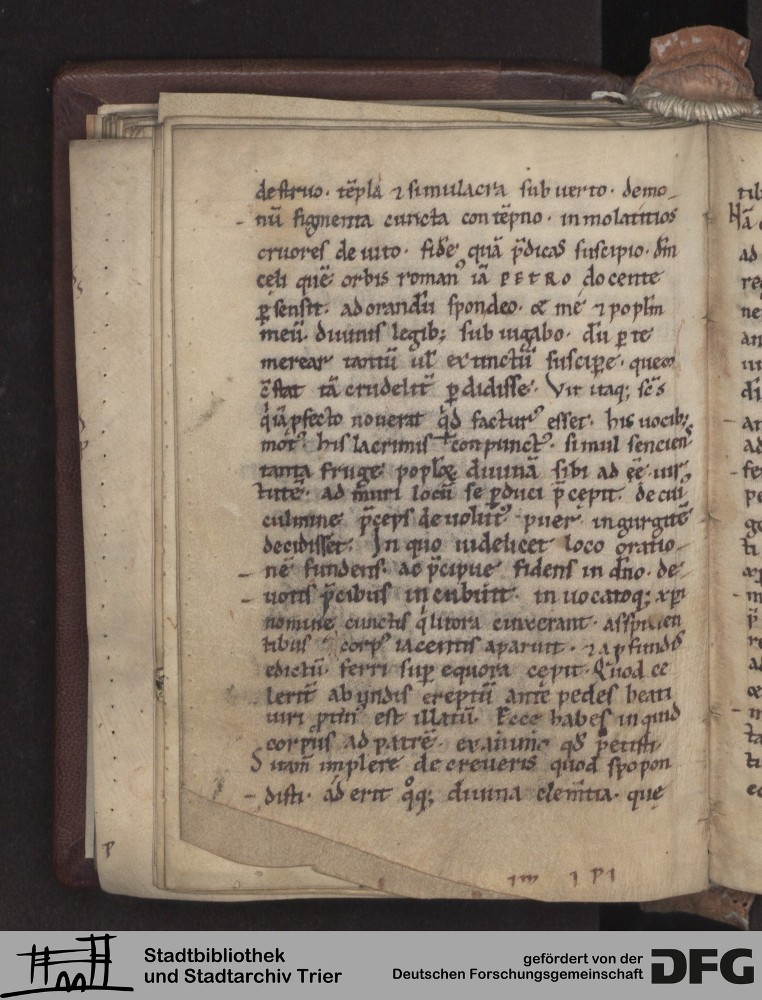 destruo· tēpla ⁊ simulacra subuerto· demo-
nū figmenta cuncta contēpno· inmolatitios
cruores deuito· fidē quā p̄dicas suscipio· dn̄m
celi quē orbis romanꝰ iā PETRO docente
ꝑsensit· adorandū spondeo· & me ⁊ popl̄m
meū· diuinis legib; subiugabo· dū ꝑ te
merear natū ul̄ extinctū suscipe· quem
tā crudelit̄ ꝑdidisse· Vir itaq; sc̄s
quia ꝓfecto nouerat qd̄ facturꝰ esset· his uocib;
motꝰ his lacrimis conpunctꝰ· simul sencienſ
tanta fruge diuinā sibi adēē uir-
tutē· ad muri locū se ꝑduci p̄cepit· de cuiꝰ
culmine p̄ceps deuolutꝰ puer ingurgitē
decidisset· In quo uidelicet loco oratio-
nē fundens· ac p̄cipue fidens in dn̄o· de-
uotis p̄cibus incubuit· inuocatoq; xp̄i
nomine cunctis q̇ litora cinxerant· asspicien
tibus corpꝰ iacentis aparuit· ⁊ a ꝓfundis
edictū ferri suꝑ equora cepit· Quod ce
lerit̄ ab yndis ereptū ante pedes beati
uiri ꝓtinꝰ est illatū· Ecce habes inquid
corpus ad patrē· exanime qd̄ petisti·
Si tam̄ implere decreueris quod spopon
disti· aderit q̊q; diuina clem̄tia· que
Stadtbibliothek
und Stadtarchiv Trier
gefördert von der
Deutschen Forschungsgemeinschaft
DFG